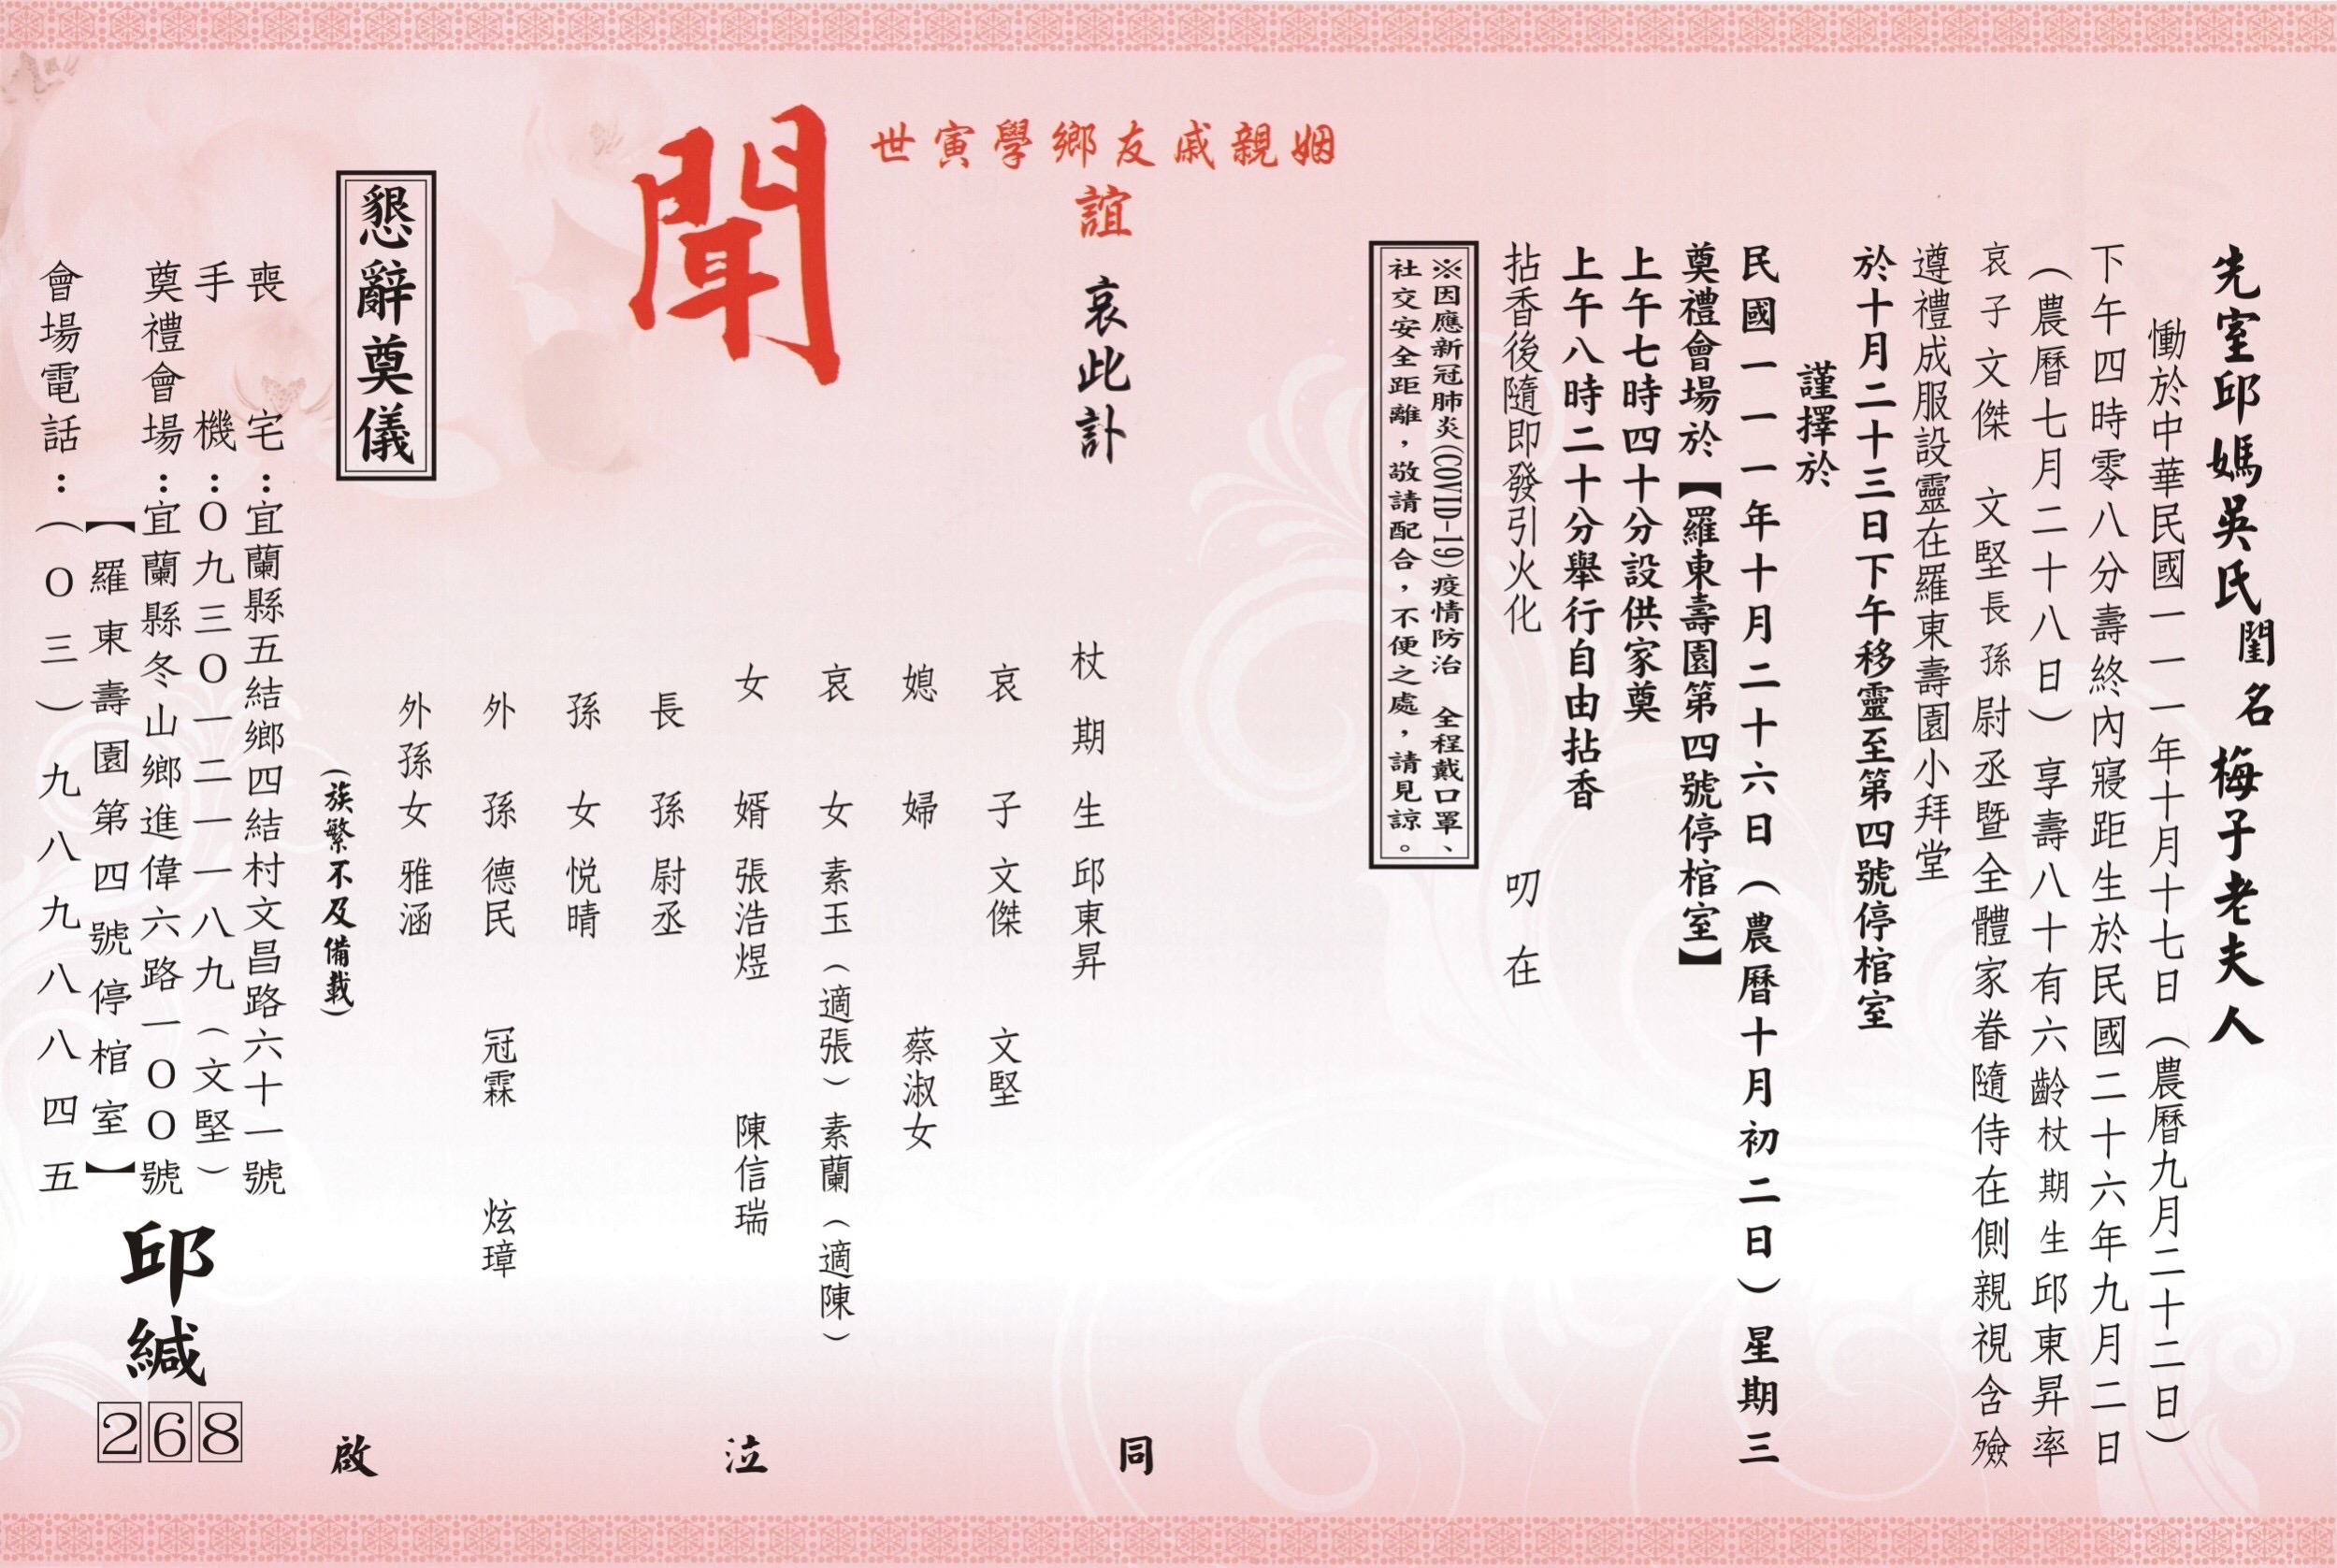 先室邱媽吳氏閨名梅子老夫人
慟於中華民國一一一年十月十七日（農曆九月二十二日）
下午四時零八分壽終內寢距生於民國二十六年九月二日
（農曆七月二十八日）享壽八十有六齡杖期生邱東昇率
哀子文傑　文堅長孫尉丞暨全體家眷隨侍在側親視含殮
遵禮成服設靈在羅東壽園小拜堂
於十月二十三日下午移靈至第四號停棺室
謹擇於
民國一一一年十月二十六日（農曆十月初二日）星期三
奠禮會場於【羅東壽園第四號停棺室】
上午七時四十分設供家奠
上午八時二十分舉行自由拈香
拈香後隨即發引火化　叨在
※因應新冠肺炎(COVID-19)疫情防治　全程戴口罩、
社交安全距離，敬請配合，不便之處，請見諒。
姻親戚友鄉學寅世
誼
哀此訃
聞
杖期生　邱東昇
哀子　文傑　文堅
媳婦　蔡淑女
哀女　素玉（適張）素蘭（適陳）
女婿　張浩煜　陳信瑞
長孫　尉丞
孫女　悦晴
外孫　德民　冠霖　炫璋
外孫女　雅涵
(族繁不及備載)
同　泣　啟
懇辭奠儀
喪宅：宜蘭縣五結鄉四結村文昌路六十一號
手機：０九三０一二一一八九（文堅）
奠禮會場：宜蘭縣冬山鄉進偉六路一００號
【羅東壽園第四號停棺室】
會場電話：（０三）九八九八八四五
邱緘
268